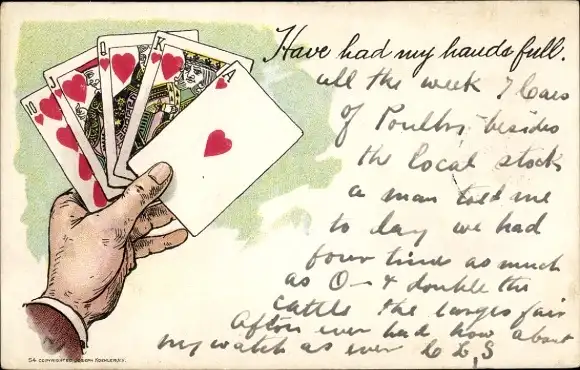 10
J
Q
K
A
Have had my hands full.
all the week 7 Cars
of Poultry besides
the local stock
a man told me
to day we had
four times as much
as O— & double the
cattle the larges fair
Afton ever had how about
my watch as ever
54 COPYRIGHTED JOSEPH KOEHLER, N.Y.